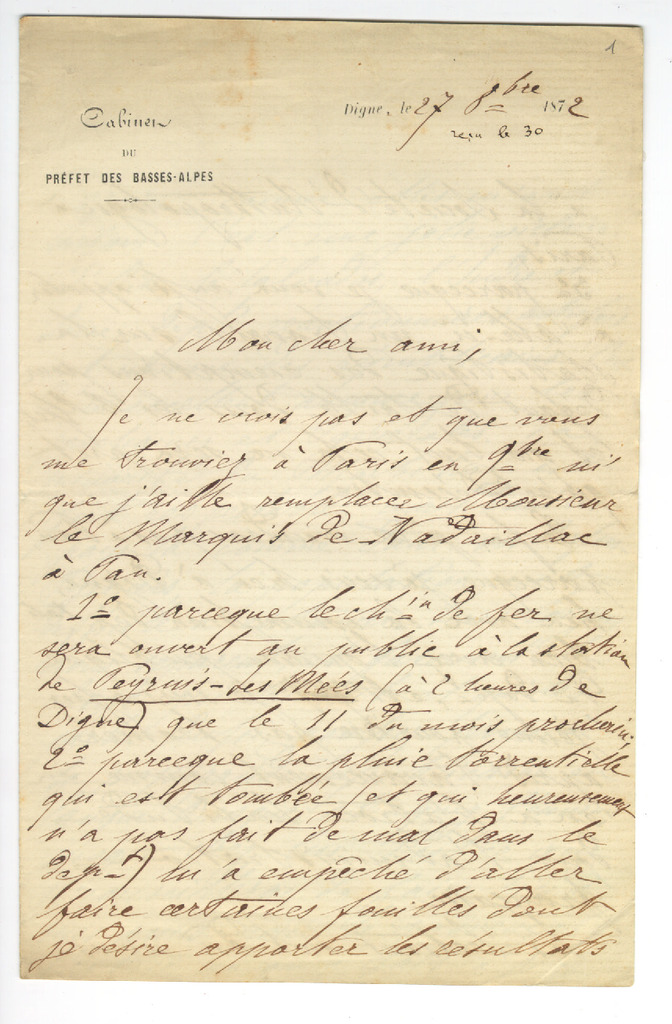 1
Cabinet
DU
PRÉFET DES BASSES-ALPES
Digne, le 27 8bre 1872
reçu le 30
Mon cher ami,
Je ne crois pas et que vous
me trouviez à Paris en 9bre ni
que j'aille remplacer Monsieur
le Marquis de Nadaillac
à Pau.
1º parceque le chin de fer ne
sera ouvert au public à la station
de Peyruis-les Mées (à 2 heures de
Digne) que le 11 du mois prochain;
2º parceque la pluie torrentielle
qui est tombée (et qui heureusement
n'a pas fait de mal dans le
dept) m'a empêché d'aller
faire certaines fouilles dont
je désire apporter les résultats